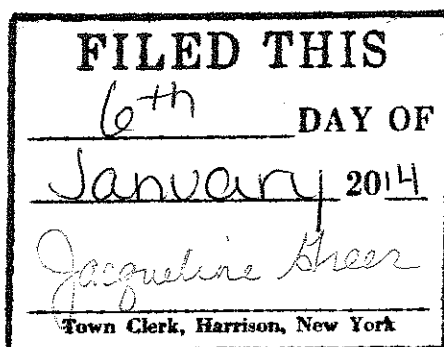 FILED THIS
6th DAY OF
January 2014
Jacqueline Greer
Town Clerk, Harrison, New York